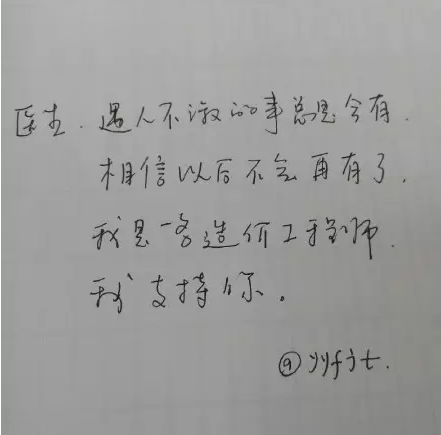 医生.遇人不淑的事总是会有.
相信以后不会再有了.
我是一名造价工程师.
我支持你。